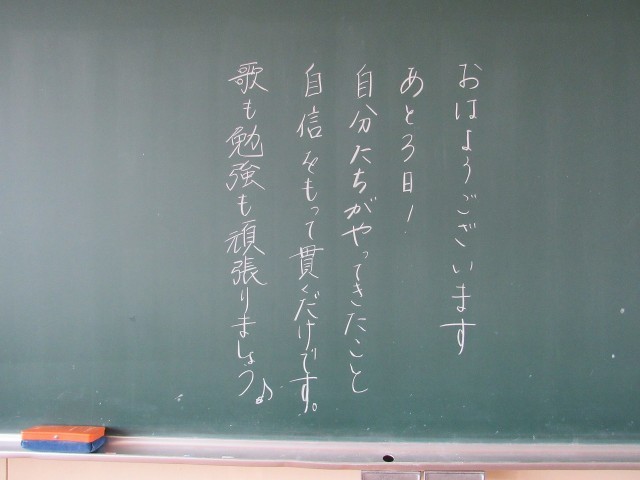 おはようございます
あと3日!
自分たちがやってきたこと
自信をもって貫くだけです。
歌も勉強も頑張りましょう♪